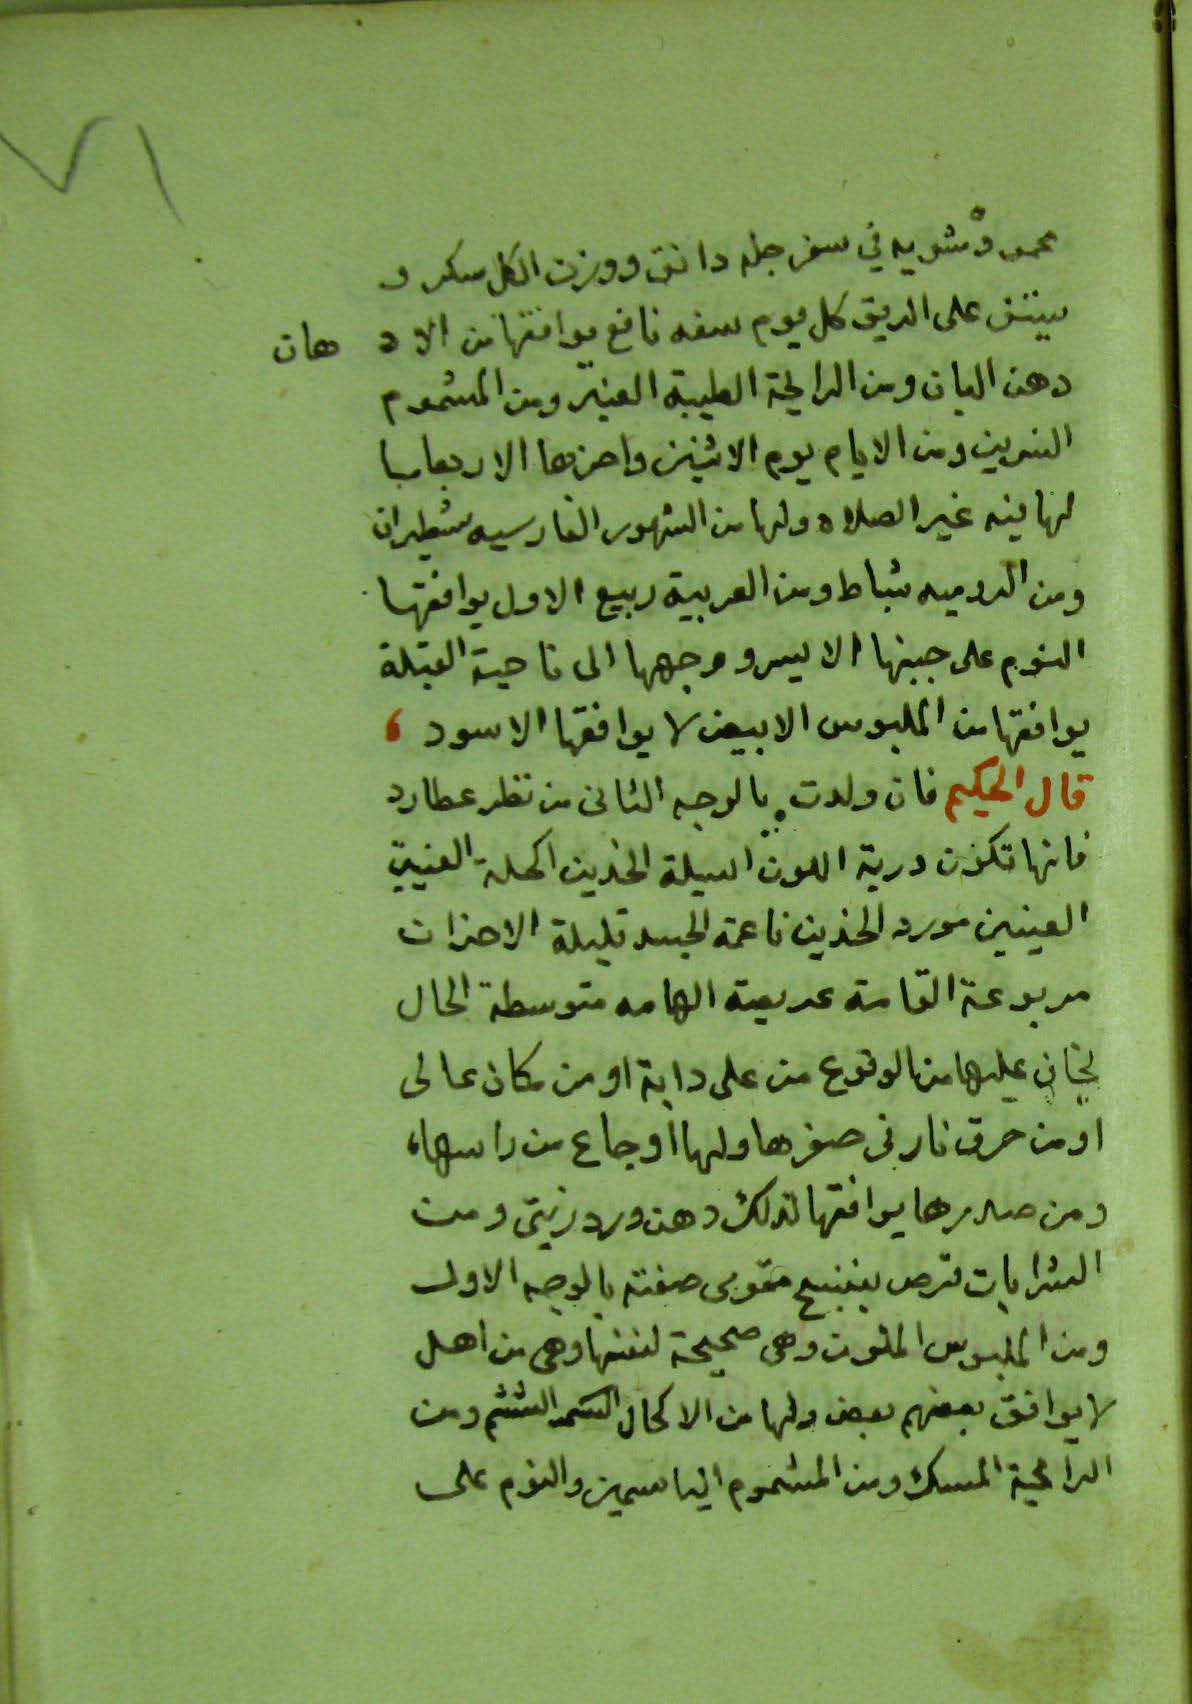 ٧١
محموده مشويه في سفرجله دانق ووزن الكل سكر و
يستف على الريق كل يوم سفه نافع يوافقها من الاد هان
دهن البان ومن الرايحة الطيبة العنبر ومن المشموم
النسرين ومن الايام يوم الاثنين واحزها الاربعا سا
لها ينه غير الصلاه ولها من الشهور الفارسيه
ومن الروميه شباط ومن العربية ربيع الاول يوافقها
النوم على جبنها الايسر ووجهها الى ناحية القبلة
يوافقها من الملبوس الابيض لا يوافقها الاسود ،
قال الحكيم فان ولدت بالوجه الثانى من نظر عطارد
فانها تكون درية اللون اسيلة الخدين اكحلة العنيين
العينين مورده الخدين ناعمة الجسد قليلة الاحزان
مربوعة القامة عريضة الهامه متوسطة الحال
يخاف عليها من الوقوع من على دابة او من مكان عالى
او من حرق نار فى صغرها ولها اوجاع من راسها،
ومن صدرها يوافقها لذلك دهن ورد زيتى ومن
الشرابات قرص بنفسج مقوى صفته بالوجه الاول
ومن الملبوس الملون وهى صحيحة لنفسها وهى من اهل
لا يوافق بعضهم بعض ولها من الاكحال الششم ومن
الرايحة المسك ومن المشموم الياسمين والنوم على